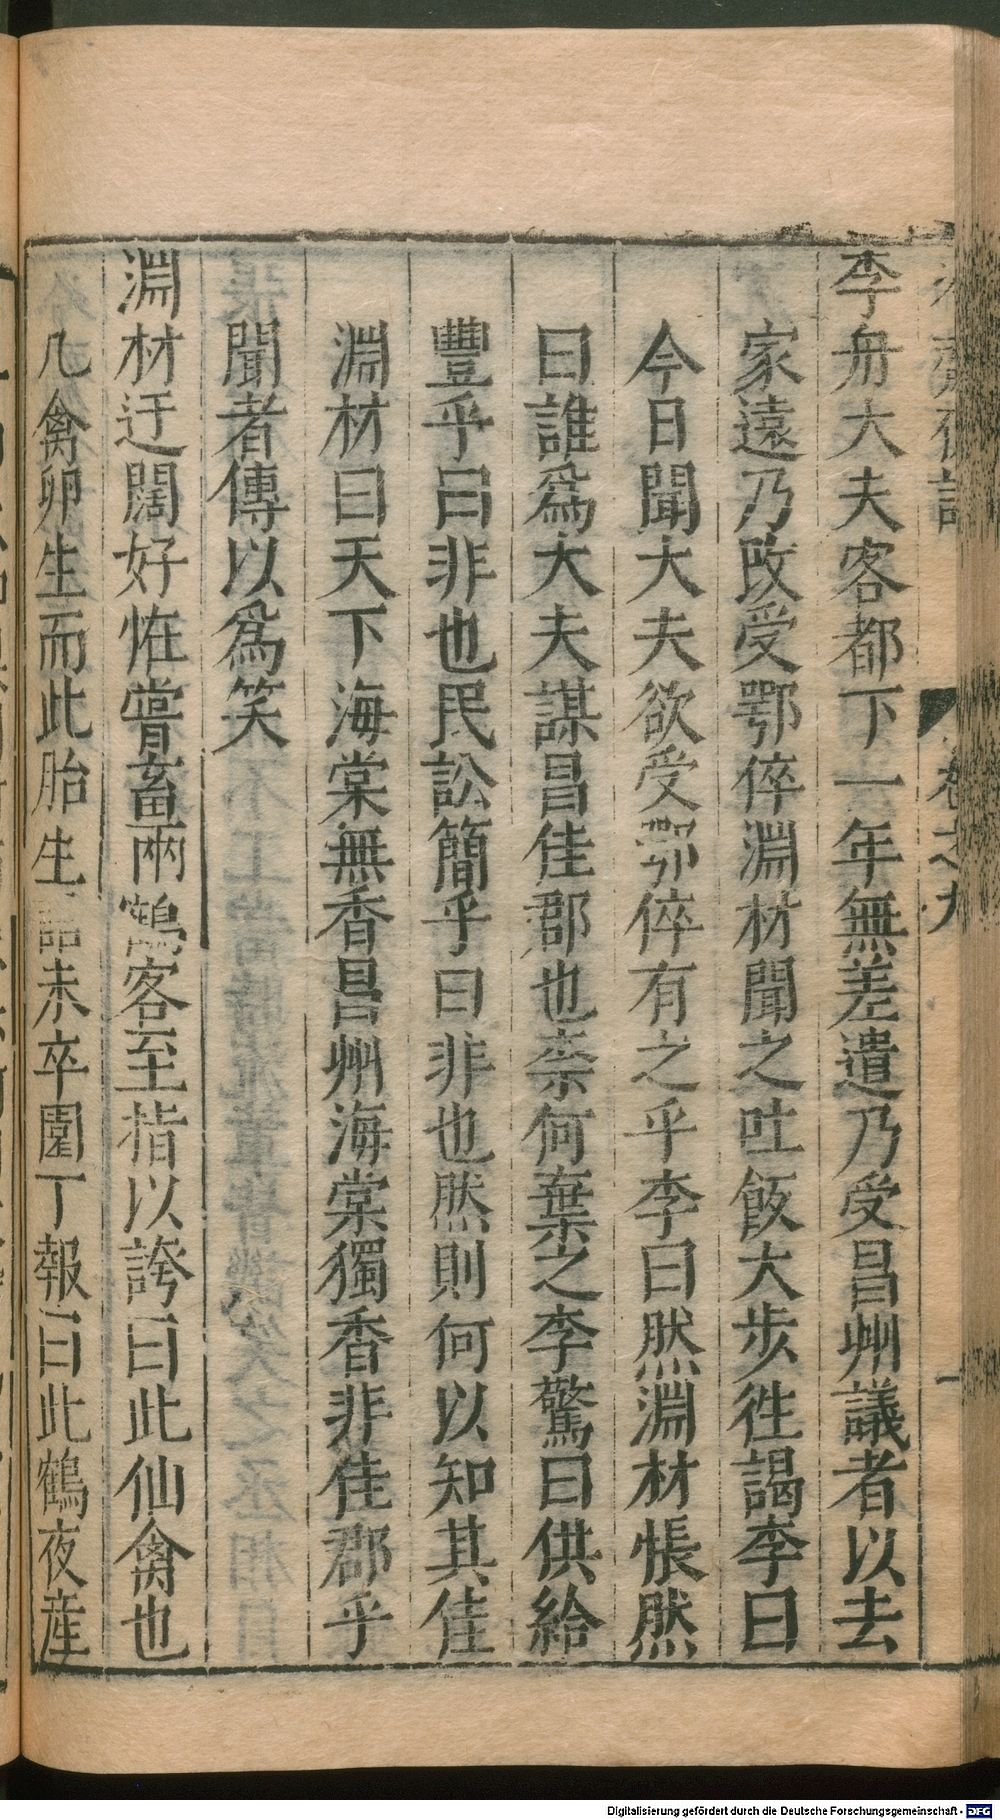 卷之九
李丹大夫客都下一年無差遣乃受昌州議者以去
家遠乃改受鄂倅淵材聞之吐飯大步徃謁李曰
今日聞大夫欲受鄂倅有之乎李曰然淵材悵然
曰誰爲大夫謀昌佳郡也柰何棄之李驚曰供給
豐乎曰非也民訟簡乎曰非也然則何以知其佳
淵材曰天下海棠無香昌州海棠獨香非佳郡乎
聞者傳以爲笑
淵材迂闊好恠嘗畜兩鶴客至指以誇曰此仙禽也
凡禽卵生而此胎生語未卒園丁報曰此鶴夜産
Digitalisierung gefördert durch die Deutsche Forschungsgemeinschaft - DFG